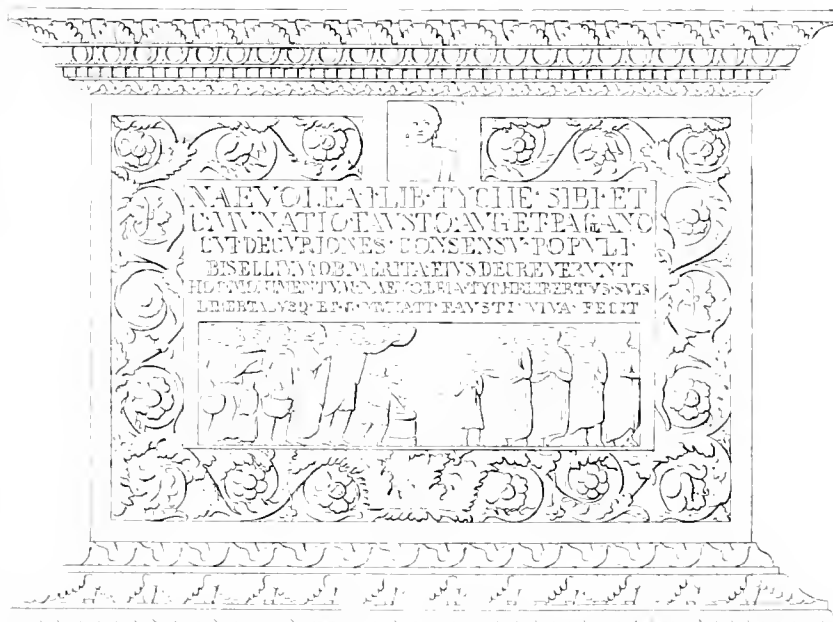 NAEVOLEA·I·LIB·TYCHE·SIBI·ET
C·MVNATIO·FAVSTO·AVG·ET·PAGANO
CVI·DECVRIONES·CONSENSV·POPVLI
BISELLIVM·OB·MERITA·EIVS·DECREVERVNT
HOC·MONIMENTVM·NAEVOLEIA·TYCHE·LIBERTVS·SVIS
LIBERTABVSQ·ET·C·MVNATI·FAVSTI·VIVA·FECIT